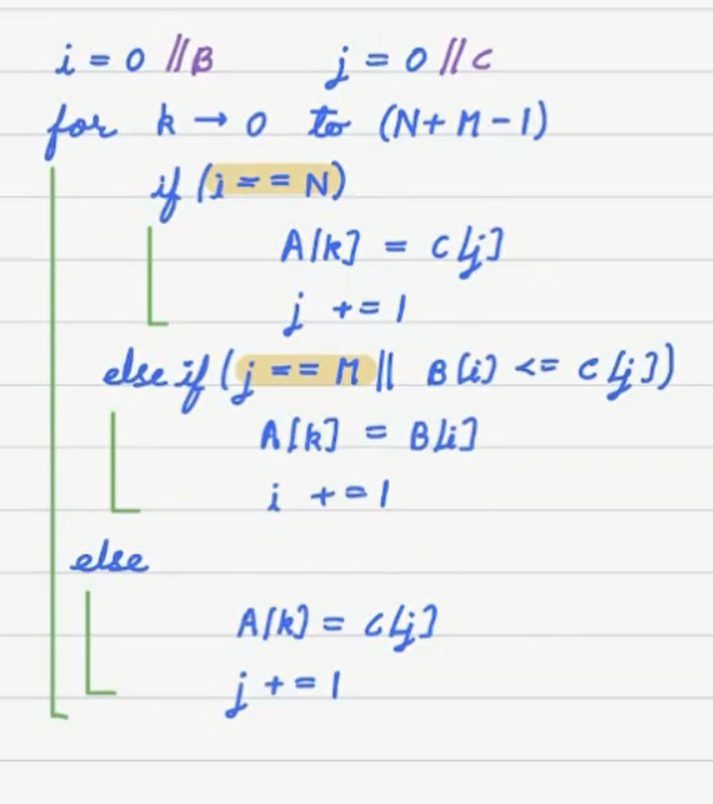 i = 0 //B j = 0 //C
for k → 0 to (N+M-1)
if (i == N)
A[k] = C[j]
j += 1
else if (j == M || B[i] <= C[j])
A[k] = B[i]
i += 1
else
A[k] = C[j]
j += 1